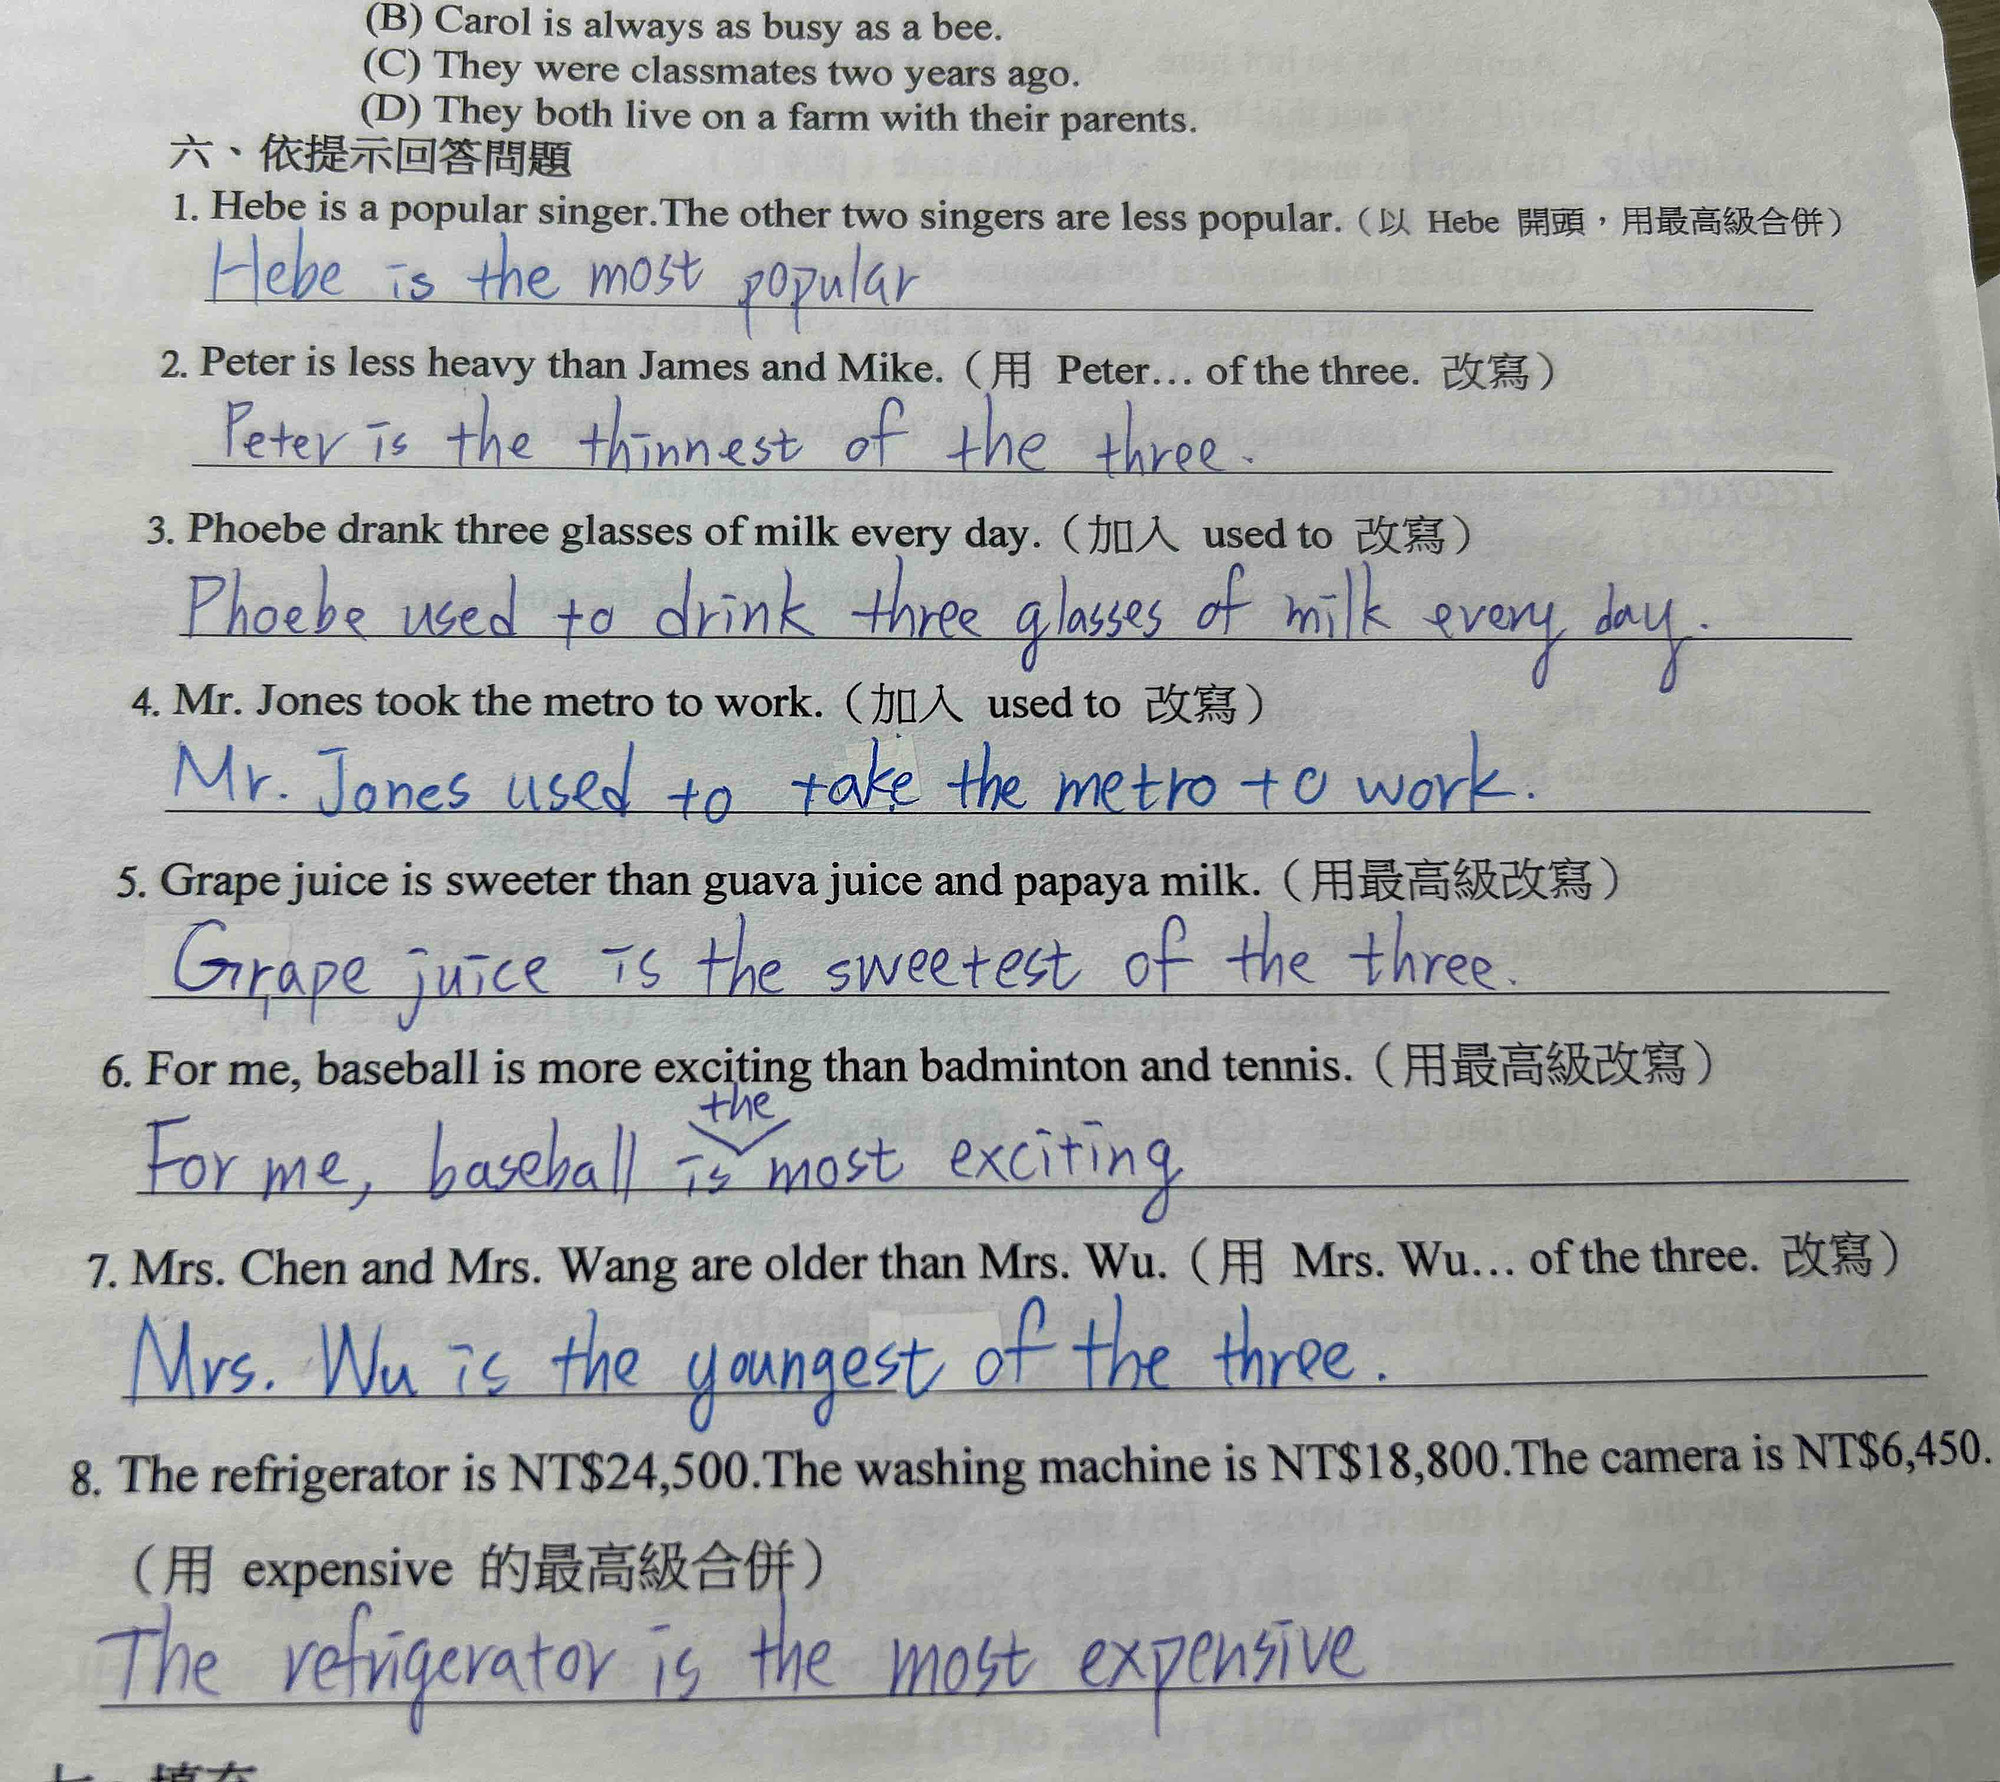 (B) Carol is always as busy as a bee.
(C) They were classmates two years ago.
(D) They both live on a farm with their parents.
六、依提示回答問題
1. Hebe is a popular singer.The other two singers are less popular.（以 Hebe 開頭，用最高級合併）
Hebe is the most popular
2. Peter is less heavy than James and Mike.（用 Peter… of the three. 改寫）
Peter is the thinnest of the three.
3. Phoebe drank three glasses of milk every day.（加入 used to 改寫）
Phoebe used to drink three glasses of milk every day.
4. Mr. Jones took the metro to work.（加入 used to 改寫）
Mr. Jones used to take the metro to work.
5. Grape juice is sweeter than guava juice and papaya milk.（用最高級改寫）
Grape juice is the sweetest of the three.
6. For me, baseball is more exciting than badminton and tennis.（用最高級改寫）
the
For me, baseball is most exciting
7. Mrs. Chen and Mrs. Wang are older than Mrs. Wu.（用 Mrs. Wu… of the three. 改寫）
Mrs. Wu is the youngest of the three.
8. The refrigerator is NT$24,500.The washing machine is NT$18,800.The camera is NT$6,450.
（用 expensive 的最高級合併）
The refrigerator is the most expensive